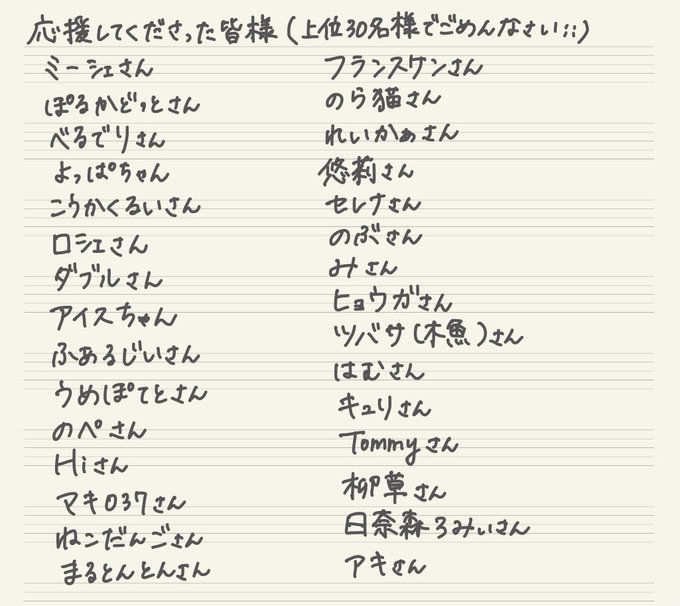 応援してくださった皆様(上位30名様でごめんなさい;;)
ミーシェさん
ぽるかどっとさん
べるでりさん
よっぱちゃん
こうかくるいさん
ロシェさん
ダブルさん
アイスちゃん
ふぁるじいさん
うめぽてとさん
のぺさん
Hiさん
マキ037さん
ねこだんごさん
まるとんとんさん
フランスケンさん
のら猫さん
れいかぁさん
悠莉さん
セレナさん
のぶさん
みさん
ヒョウガさん
ツバサ(木魚)さん
はむさん
キュリさん
Tommyさん
柳草さん
日奈森ろみぃさん
アキさん